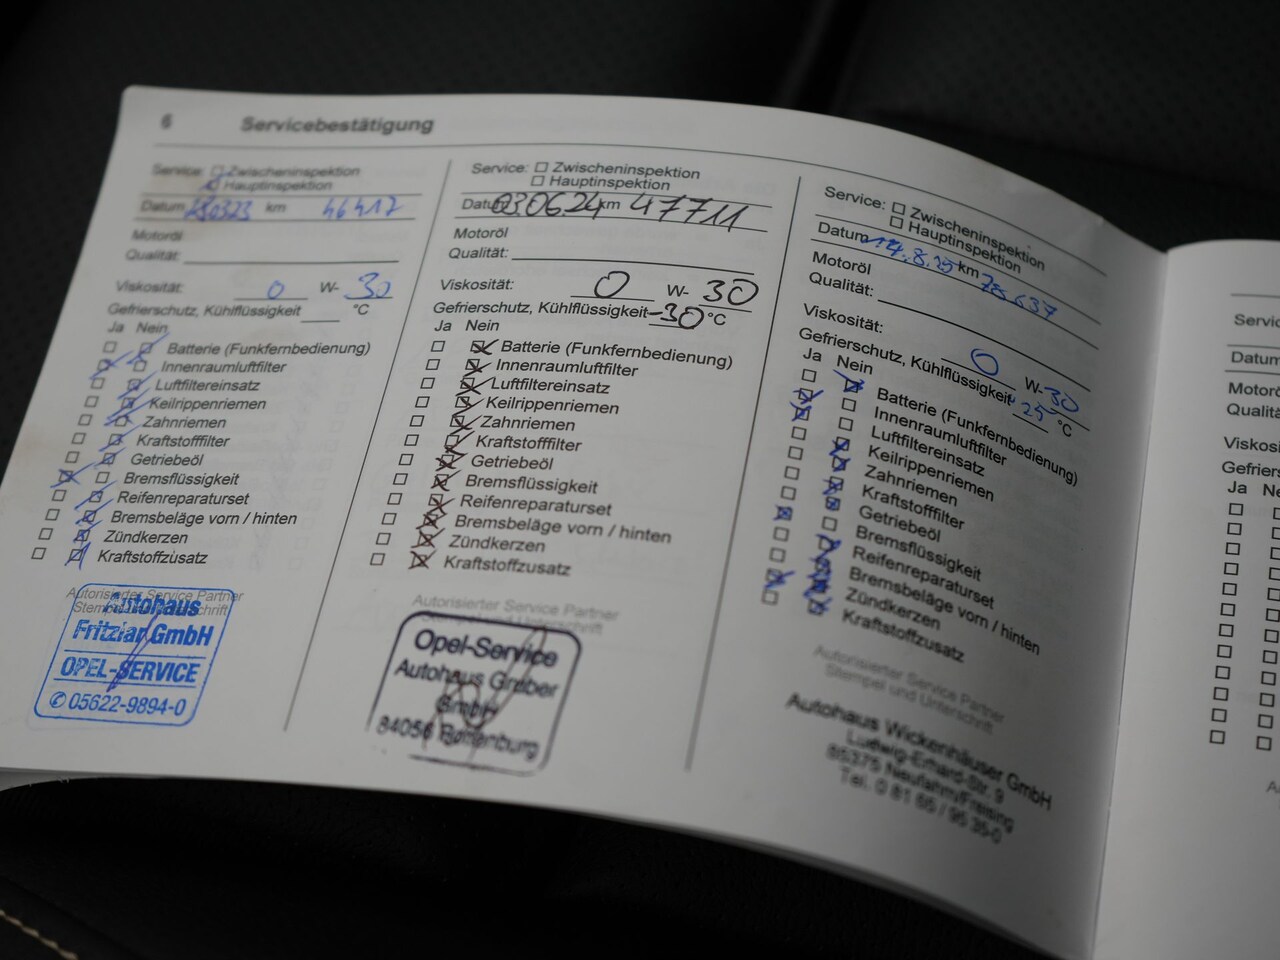 6 Servicebestätigung
Service: Zwischeninspektion
Hauptinspektion
Datum 280323 km 46417
Motoröl
Qualität:
Viskosität: 0 W- 30
Gefrierschutz, Kühlflüssigkeit °C
Ja Nein
Batterie (Funkfernbedienung)
Innenraumluftfilter
Luftfiltereinsatz
Keilrippenriemen
Zahnriemen
Kraftstofffilter
Getriebeöl
Bremsflüssigkeit
Reifenreparaturset
Bremsbeläge vorn / hinten
Zündkerzen
Kraftstoffzusatz
Autorisierter Service Partner
Autohaus
Fritzlar GmbH
OPEL-SERVICE
✆ 05622-9894-0
Service: Zwischeninspektion
Hauptinspektion
Datum 03.06.24 km 47711
Motoröl
Qualität:
Viskosität: 0 W- 30
Gefrierschutz, Kühlflüssigkeit -30 °C
Ja Nein
Batterie (Funkfernbedienung)
Innenraumluftfilter
Luftfiltereinsatz
Keilrippenriemen
Zahnriemen
Kraftstofffilter
Getriebeöl
Bremsflüssigkeit
Reifenreparaturset
Bremsbeläge vorn / hinten
Zündkerzen
Kraftstoffzusatz
Autorisierter Service Partner
Stempel und Unterschrift
Opel-Service
Autohaus Gruber
GmbH
84056 Rottenburg
Service: Zwischeninspektion
Hauptinspektion
Datum 14.8.25 km 75637
Motoröl
Qualität:
Viskosität: 0 W- 30
Gefrierschutz, Kühlflüssigkeit -25 °C
Ja Nein
Batterie (Funkfernbedienung)
Innenraumluftfilter
Luftfiltereinsatz
Keilrippenriemen
Zahnriemen
Kraftstofffilter
Getriebeöl
Bremsflüssigkeit
Reifenreparaturset
Bremsbeläge vorn / hinten
Zündkerzen
Kraftstoffzusatz
Autorisierter Service Partner
Stempel und Unterschrift
Autohaus Wickenhäuser GmbH
Ludwig-Erhard-Str. 9
85375 Neufahrn/Freising
Tel. 0 81 65 / 95 35-0
Servic
Datum
Motorö
Qualitä
Viskosi
Gefriers
Ja Ne